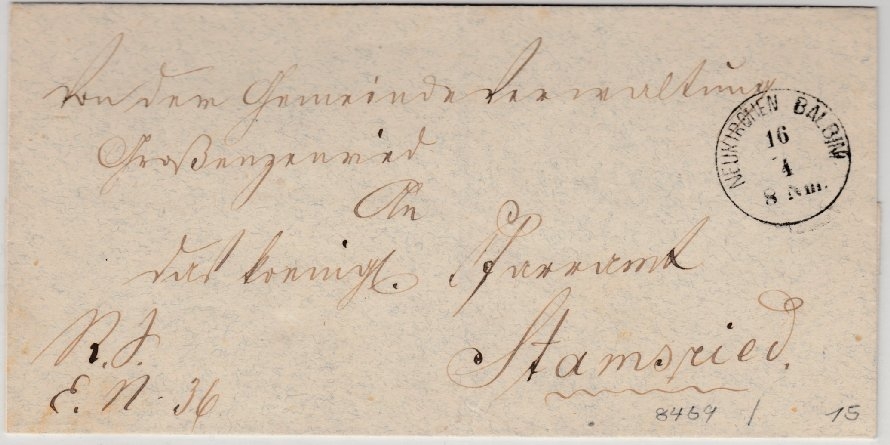 Von der Gemeindeverwaltung
Großenzenried
An
das koenigl. Pfarramt
Stamsried.
R. S.
E. N. 36
NEUKIRCHEN BALBINI
16
4
8 Nm.
8469 / 15